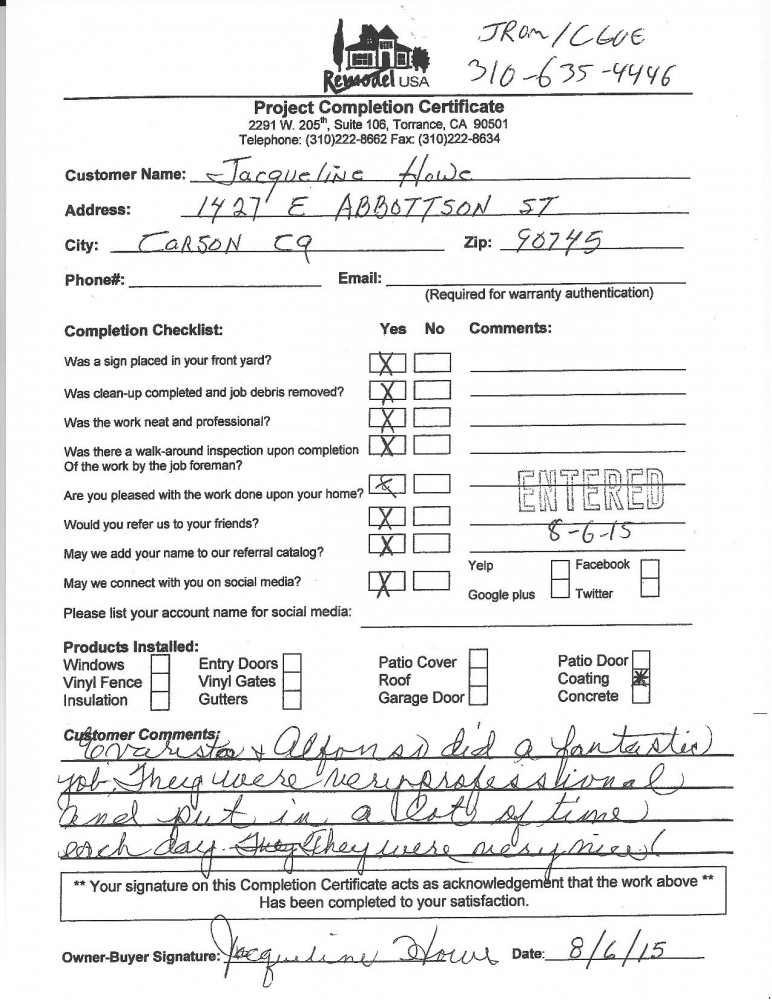 JROM/CGUE
310-635-4446
Remodel USA
Project Completion Certificate
2291 W. 205th, Suite 106, Torrance, CA 90501
Telephone: (310)222-8662 Fax: (310)222-8634
Customer Name: Jacqueline Howe
Address: 1427 E ABBOTTSON ST
City: CARSON CA Zip: 90745
Phone#: Email:
(Required for warranty authentication)
Completion Checklist: Yes No Comments:
Was a sign placed in your front yard? X
Was clean-up completed and job debris removed? X
Was the work neat and professional? X
Was there a walk-around inspection upon completion X
Of the work by the job foreman?
Are you pleased with the work done upon your home? X
ENTERED
Would you refer us to your friends? X 8-6-15
May we add your name to our referral catalog? X
May we connect with you on social media? X
Yelp Facebook
Google plus Twitter
Please list your account name for social media:
Products Installed:
Windows Entry Doors Patio Cover Patio Door
Vinyl Fence Vinyl Gates Roof Coating X
Insulation Gutters Garage Door Concrete
Customer Comments:
Evaristo + Alfonso did a fantastic
job. They were very professional
and put in a lot of time
each day. They They were very nice!
** Your signature on this Completion Certificate acts as acknowledgement that the work above **
Has been completed to your satisfaction.
Owner-Buyer Signature: Jacqueline Howe Date: 8/6/15